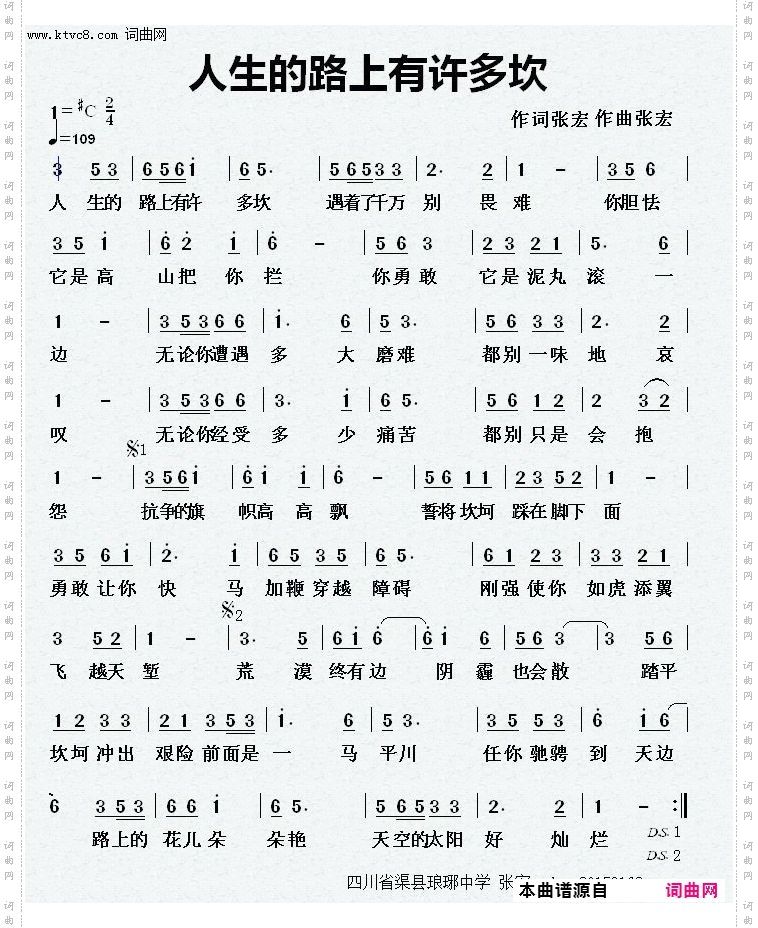 www.ktvc8.com 词曲网
人生的路上有许多坎
1=#C 2/4
♩=109
作词张宏 作曲张宏
3 53 | 6561 | 65. | 56533 | 2. 2 | 1 - | 356 |
人 生的 路上有许 多坎 遇着了千万 别 畏 难 你胆怯
35 1 | 62 1 | 6 - | 56 3 | 23 21 | 5. 6 |
它是高 山把 你 拦 你勇敢 它是泥丸 滚 一
1 - | 35366 | 1. 6 | 53. | 56 33 | 2. 2 |
边 无论你遭遇 多 大 磨难 都别一味 地 哀
1 - | 35366 | 3. 1 | 65. | 56 12 | 2 32 |
叹 无论你经受 多 少 痛苦 都别只是 会 抱
𝄋1
1 - | 3561 | 61 1 | 6 - | 56 11 | 23 52 | 2 - |
怨 抗争的旗 帜高 高 飘 誓将坎坷 踩在脚下 面
35 61 | 2. 1 | 65 35 | 65. | 61 23 | 33 21 |
勇敢让你 快 马 加鞭穿越 障碍 刚强使你 如虎添翼
𝄋2
3 52 | 1 - | 3. 5 | 61 6 | 61 6 | 56 3 | 3 56 |
飞 越天 堑 荒 漠 终有边 阴 霾 也会散 踏平
12 33 | 21 353 | 1. 6 | 53. | 55 53 | 6 16 |
坎坷冲出 艰险前面是 一 马 平川 任你驰骋 到 天边
6 353 | 66 1 | 65. | 56533 | 2. 2 | 1 - :||
路上的 花儿朵 朵艳 天空的太阳 好 灿 烂
D.S. 1
D.S. 2
四川省渠县琅琊中学 张宏
本曲谱源自 词曲网
词曲网